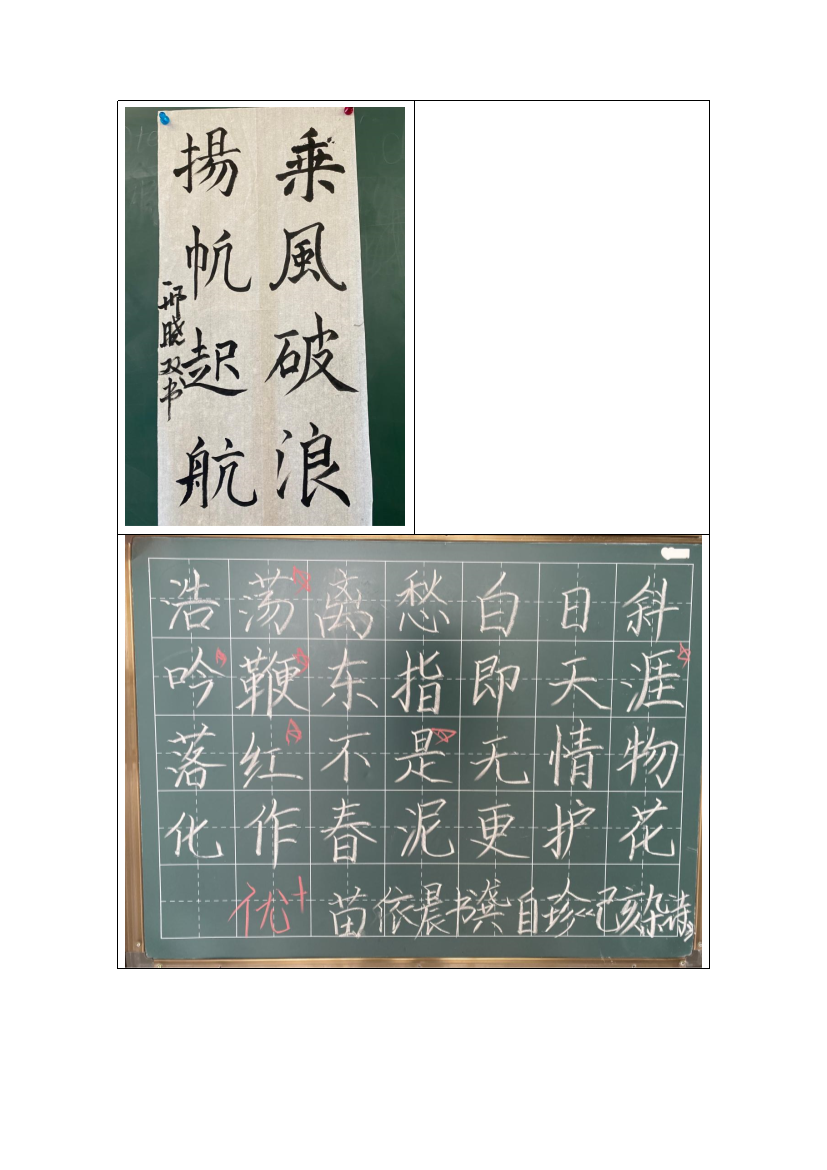 乘風破浪
揚帆起航
邢晓双书
浩荡离愁白日斜
吟鞭东指即天涯
落红不是无情物
化作春泥更护花
优+ 苗依晨书龚自珍《己亥杂诗》